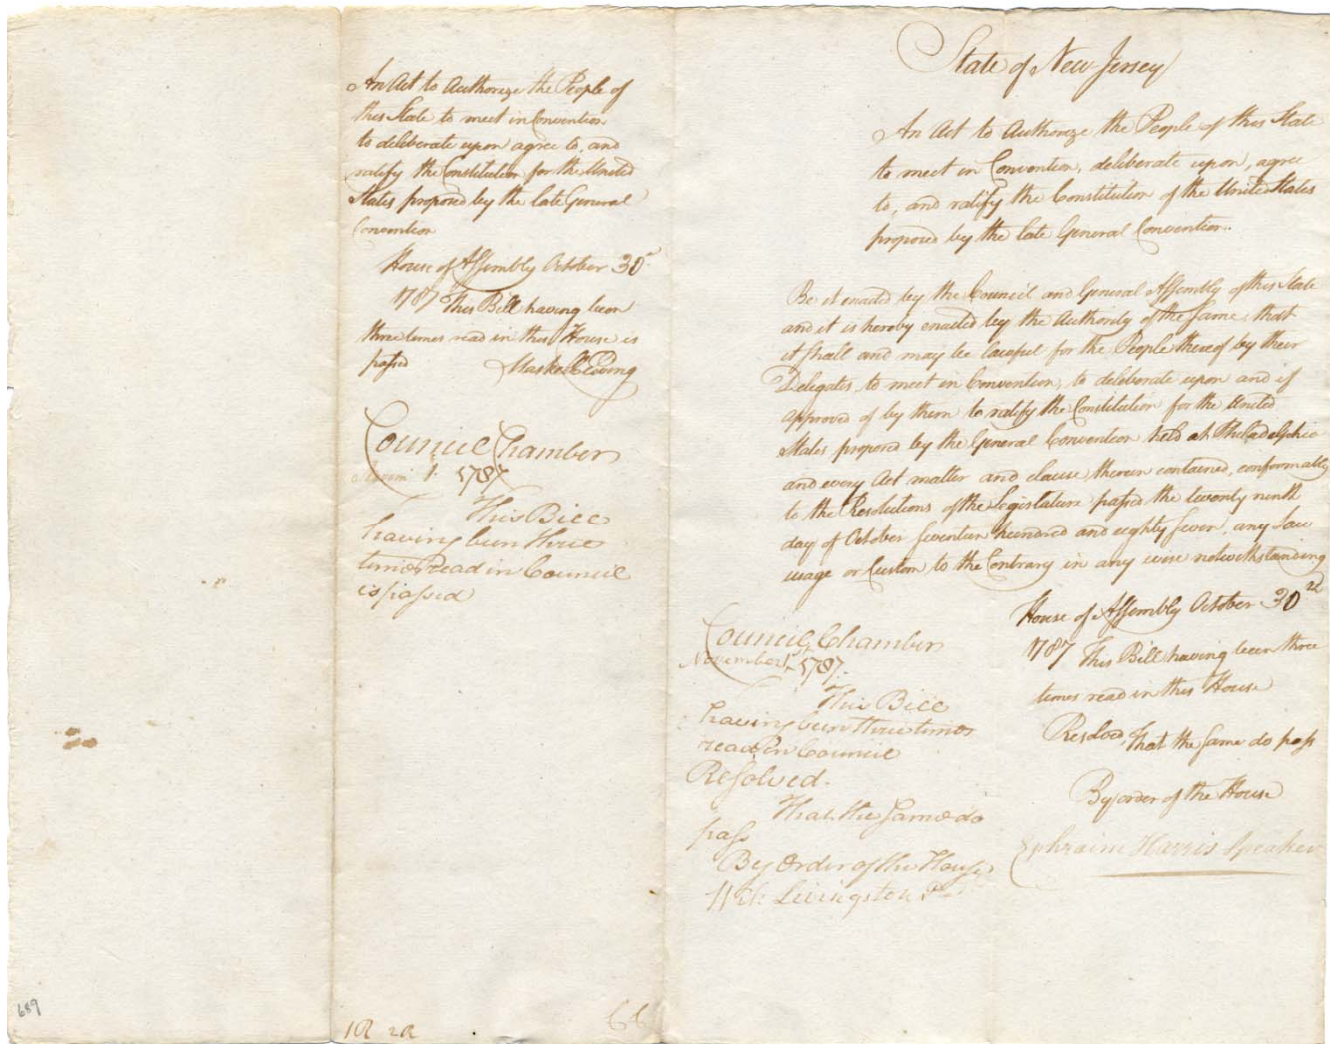 An Act to Authorize the People of
this State to meet in Convention
to deliberate upon agree to, and
ratify the Constitution for the United
States proposed by the late General
Convention
House of Assembly October 30
1787 This Bill having been
three times read in this House is
passed Maskell Ewing
Council Chamber
1. 1787
This Bill
having been three
times read in Council
is passed
689
1R 2R
State of New Jersey
An Act to Authorize the People of this State
to meet in Convention, deliberate upon, agree
to, and ratify the Constitution of the United States
proposed by the late General Convention.
Be it enacted by the Council and General Assembly of this State
and it is hereby enacted by the Authority of the same, that
it shall and may be lawful for the People thereof by their
Delegates, to meet in Convention, to deliberate upon and if
approved of by them to ratify the Constitution for the United
States proposed by the General Convention held at Philadelphia
and every Act matter and clause therein contained, conformably
to the Resolutions of the Legislature passed the twenty ninth
day of October seventeen hundred and eighty seven, any Law
usage or Custom to the Contrary in any wise notwithstanding
Council Chamber
November 1, 1787.
This Bill
having been three times
read in Council
Resolved.
That the Same do
pass
By Order of the House
Wil: Livingston Pt
House of Assembly October 30
1787 This Bill having been three
times read in this House
Resolved, That the same do pass
By order of the House
Ephraim Harris Speaker